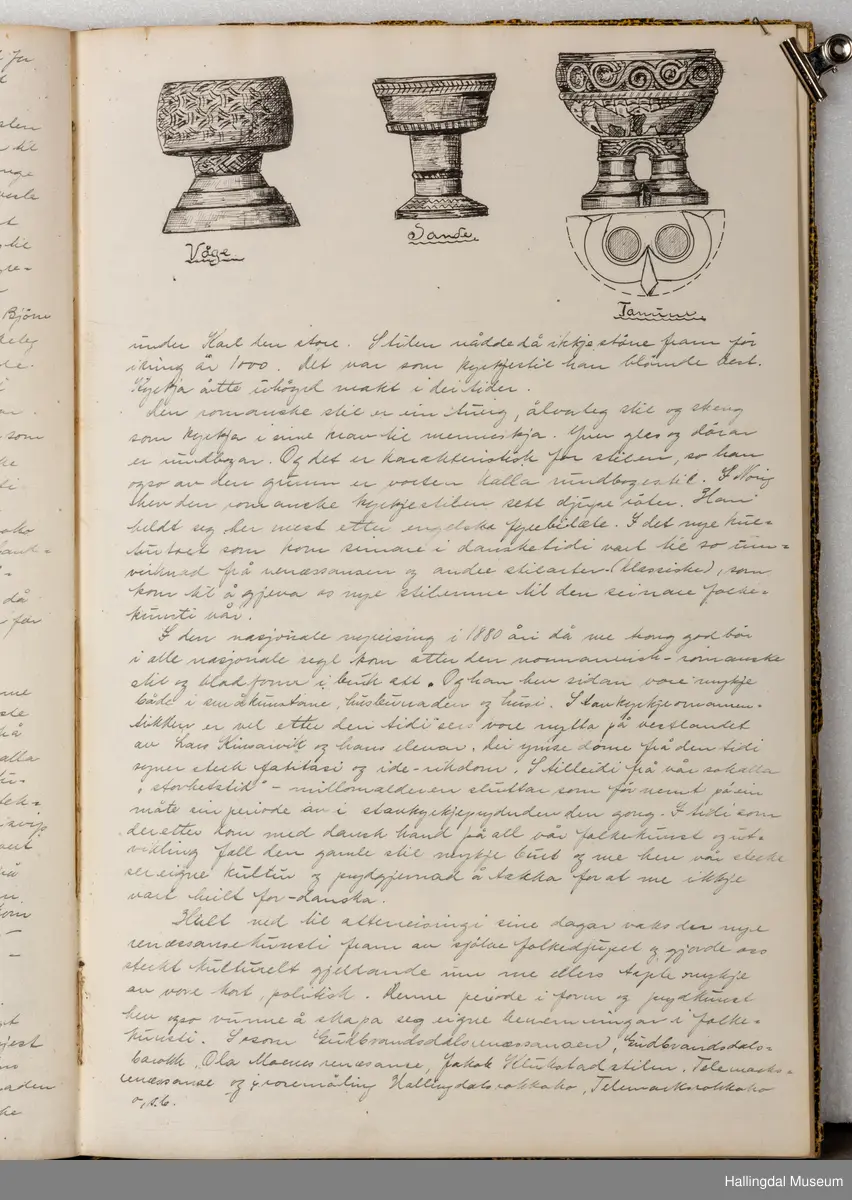 Våge
Sande
Tanum
under Karl den store. Stilen nådde då ikkje större fram för
ikring år 1000. Det var som kyrkjestil han blömde best.
Kyrkja åtte uhögd makt i dei tider.
Den romanske stil er ein tung, ålvorleg stil og streng
som kyrkja i sine krav til menneskja. Yver glas og dörar
er rundbogar. Og det er karakteristisk for stilen, so han
ogso av den grunn er vorten kalla rundbogestil. I Norig
hev den romanske kyrkjestilen sett djupe röter. Han
heldt seg her mest etter engelske fyrebilæte. I det nye kul-
turtoet som kom seinare i dansketidi vart til so um-
virknad frå renæssansen og andre stilarter (klassiske), som
kom til å gjeva os nye stilemne til den seinare folke-
kunsti vår.
I den nasjonale nyreising i 1880 åri då me kong god bör
i alle nasjonale segl kom atter den normannisk-romanske
stil og bladform i bruk att. Og han hev sidan vore mykje
både i småkunstane, husbunaden og husi. Stavkyrkjeornamen-
tikken er vel etter den tidi sers vore nytta på vestlandet
av Lars Kinsarvik og hans elevar. Dei ymse döme frå den tidi
syner sterk fatitasi og ide-rikdom. Stilleidi frå vår sokalla
"storhetstid" - millomalderen sluttar som för nemt på ein
måte sin periode av i stavkyrkjeprydnden den gong. I tidi som
deretter kom med dansk hand på all vår folkekunst og ut-
vikling fall den gamle stil mykje burt og me hev vår sterke
sereigne kultur og prydgjernad å takka for at me ikkje
vart heilt for-danska.
Heilt ned til atterreisingi sine dagar vaks der nye
renæssansekunsti fram av sjölve folkedjupet og gjorde oss
sterkt kulturelt gjeldande um me ellers tapte mykje
av vore kort, politisk. Denne periode i form og prydkunst
hev ogso vunne å skapa seg eigne benemningar i folke-
kunsti. Sosom Gudbrandsdalsrenæssansen, Gudbrandsdals-
barokk, Ola Moenes renæsanse, Jakob Klukstad stilen. Telemarks-
renæssanse og rosemåling Hallingdalsrokkoko, Telemarksrokkoko
o, s. b.
Hallingdal Museum